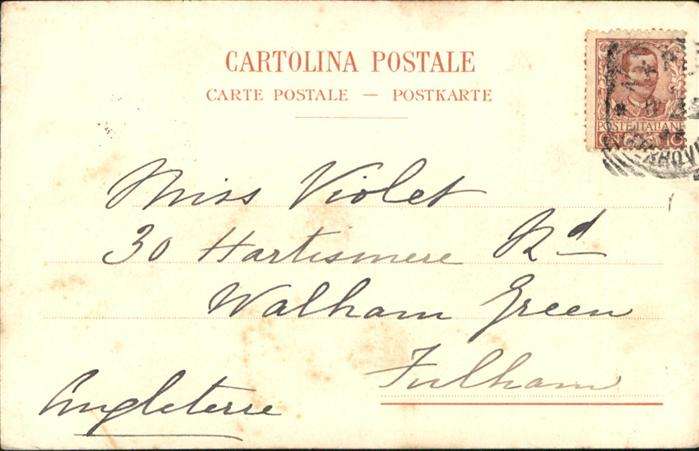 CARTOLINA POSTALE
CARTE POSTALE — POSTKARTE
POSTE ITALIANE
Miss Violet
30 Hartismere Rd
Walham Green
Fulham
Angleterre